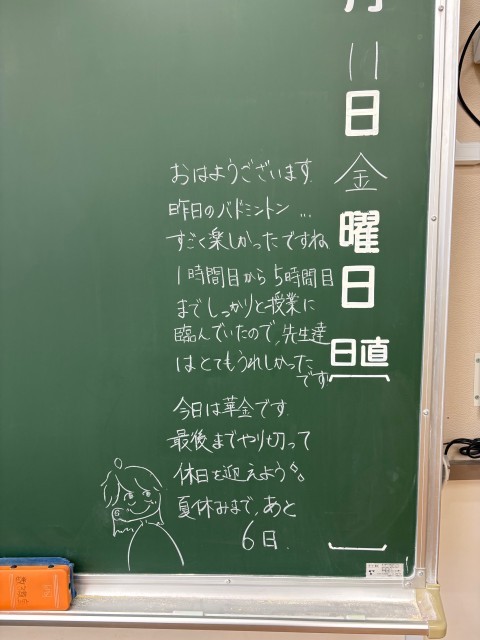 月
11
日
金
曜
日
日直
おはようございます.
昨日のバドミントン...
すごく楽しかったですね
1時間目から5時間目
までしっかりと授業に
臨んでいたので,先生達
はとてもうれしかった
です
今日は華金です.
最後までやり切って
休日を迎えよう
夏休みまで,あと
6日.